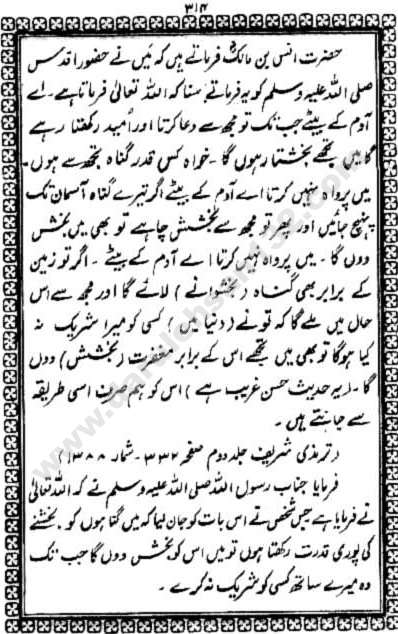 ۳۱۴
حضرت انس بن مالکؓ فرماتے ہیں کہ میں نے حضور اقدس
صلی اللہ علیہ وسلم کو یہ فرماتے سنا کہ اللہ تعالیٰ فرماتا ہے۔ اے
آدم کے بیٹے جب تک تو مجھ سے دعا کرتا اور اُمید رکھتا رہے
گا میں تجھے بخشتا رہوں گا۔ خواہ کس قدر گناہ تجھ سے ہوں۔
میں پرواہ نہیں کرتا اے آدم کے بیٹے اگر تیرے گناہ آسمان تک
پہنچ جائیں اور پھر تو مجھ سے بخشش چاہے تو بھی میں بخش
دوں گا۔ میں پرواہ نہیں کرتا اے آدم کے بیٹے۔ اگر تو زمین
کے برابر بھی گناہ (بخشوانے) لائے گا اور مجھ سے اس
حال میں ملے گا کہ تو نے (دنیا میں) کسی کو میرا شریک نہ
کیا ہوگا تو بھی میں تجھے اس کے برابر مغفرت (بخشش) دوں
گا۔ (یہ حدیث حسن غریب ہے) اس کو ہم صرف اسی طریقہ
سے جانتے ہیں۔
(ترمذی شریف جلد دوم صفحہ ۳۳۲۔ شمار ۱۳۸۸)
فرمایا جناب رسول اللہ صلی اللہ علیہ وسلم نے کہ اللہ تعالیٰ
نے فرمایا ہے جس شخص نے اس بات کو جان لیا کہ میں گناہوں کو بخشنے
کی پوری قدرت رکھتا ہوں تو میں اس کو بخش دوں گا جب تک
وہ میرے ساتھ کسی کو شریک نہ کرے۔